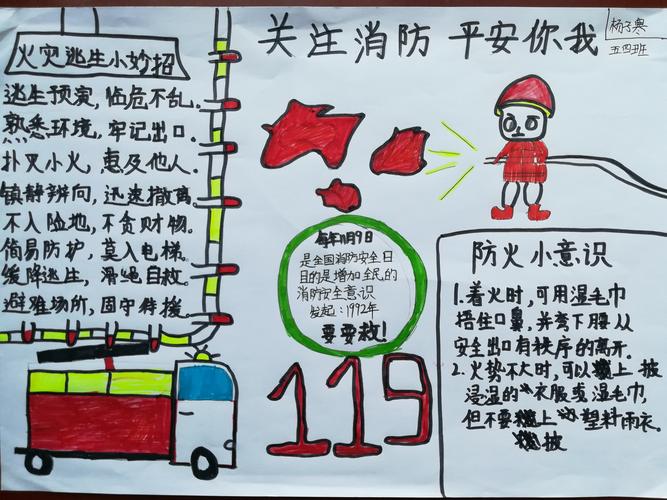 关注消防 平安你我
五四班
火灾逃生小妙招
逃生预演,临危不乱。
熟悉环境,牢记出口。
扑灭小火,惠及他人。
镇静辨向,迅速撤离。
不入险地,不贪财物。
简易防护,莫入电梯。
缓降逃生,滑绳自救。
避难场所,固守待援。
每年11月9日
是全国消防安全日
目的是增加全民的
消防安全意识
发起:1992年
要要救!
119
防火小意识
1.着火时,可用湿毛巾
捂住口鼻,并弯下腰从
安全出口有秩序的离开。
2.火势不大时,可以上披
浸湿的衣服或湿毛巾,
但不要上塑料雨衣。
披